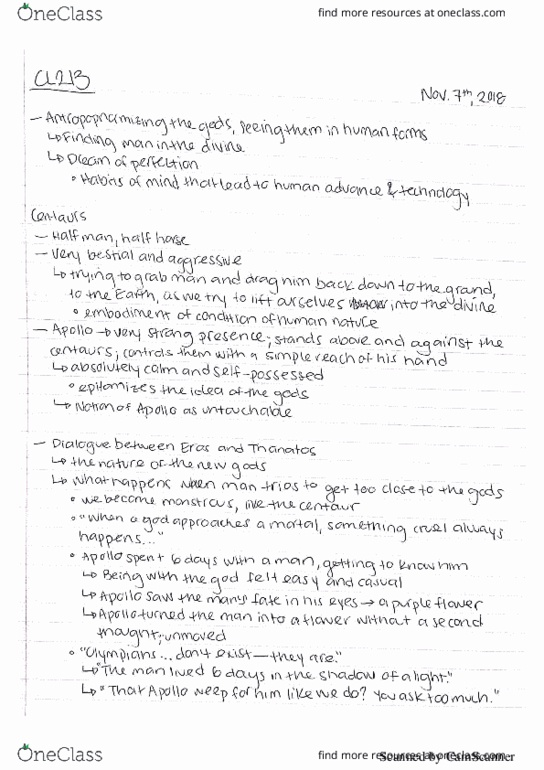 OneClass
find more resources at oneclass.com
CL213
Nov. 7th, 2018
- Anthropopnamizing the gods, seeing them in human forms
↳ Finding man in the divine
↳ Dream of perfection
• Habits of mind that lead to human advance & technology
Centaurs
- Half man, half horse
- Very bestial and aggressive
↳ trying to grab man and drag him back down to the ground,
to the Earth, as we try to lift ourselves into the divine
• embodiment of condition of human nature
- Apollo → very strong presence; stands above and against the
centaurs; controls them with a simple reach of his hand
↳ absolutely calm and self-possessed
• epitomizes the idea of the gods
↳ Notion of Apollo as untouchable
- Dialogue between Eros and Thanatos
↳ the nature of the new gods
↳ what happens when man tries to get too close to the gods
• we become monstrous, like the centaur
• "When a god approaches a mortal, something cruel always
happens..."
• Apollo spent 6 days with a man, getting to know him
↳ Being with the god felt easy and casual
↳ Apollo saw the man's fate in his eyes → a purple flower
↳ Apollo turned the man into a flower without a second
thought; unmoved
• "Olympians... don't exist - they are."
↳ "The man lived 6 days in the shadow of a light."
↳ "That Apollo weep for him like we do? You ask too much."
OneClass
find more resources at oneclass.com
Scanned by CamScanner